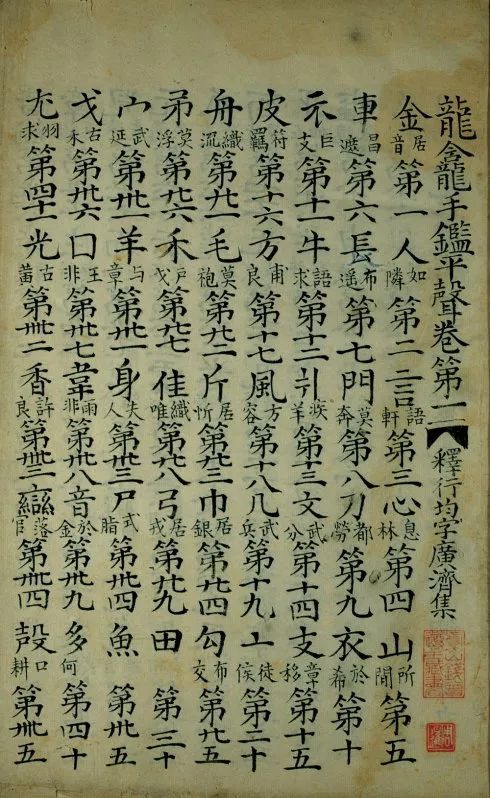 龍龕手鑑平聲卷第一 釋行均字廣濟集
金居音第一人如隣第二言語軒第三心息林第四山所閒第五
車昌遮第六長布遥第七門莫奔第八刀都勞第九衣於希第十
示巨支第十一牛語求第十二爿疾羊第十三文武分第十四支章移第十五
皮符羈第十六方甫良第十七風方容第十八几武兵第十九亠徒侯第二十
舟織流第廿一毛莫袍第廿二斤居忻第廿三巾居銀第廿四勹布交第廿五
矛莫浮第廿六禾户戈第廿七隹織唯第廿八弓居戎第廿九田第三十
宀武延第卅一羊与章第卅一身失人第卅三尸式脂第卅四魚第卅五
戈古禾第卅六囗王非第卅七韋雨非第卅八音於金第卅九多何第四十
尢羽求第四十一光古黄第卌二香許良第卌三䜌落官第卌四殸口耕第卌五